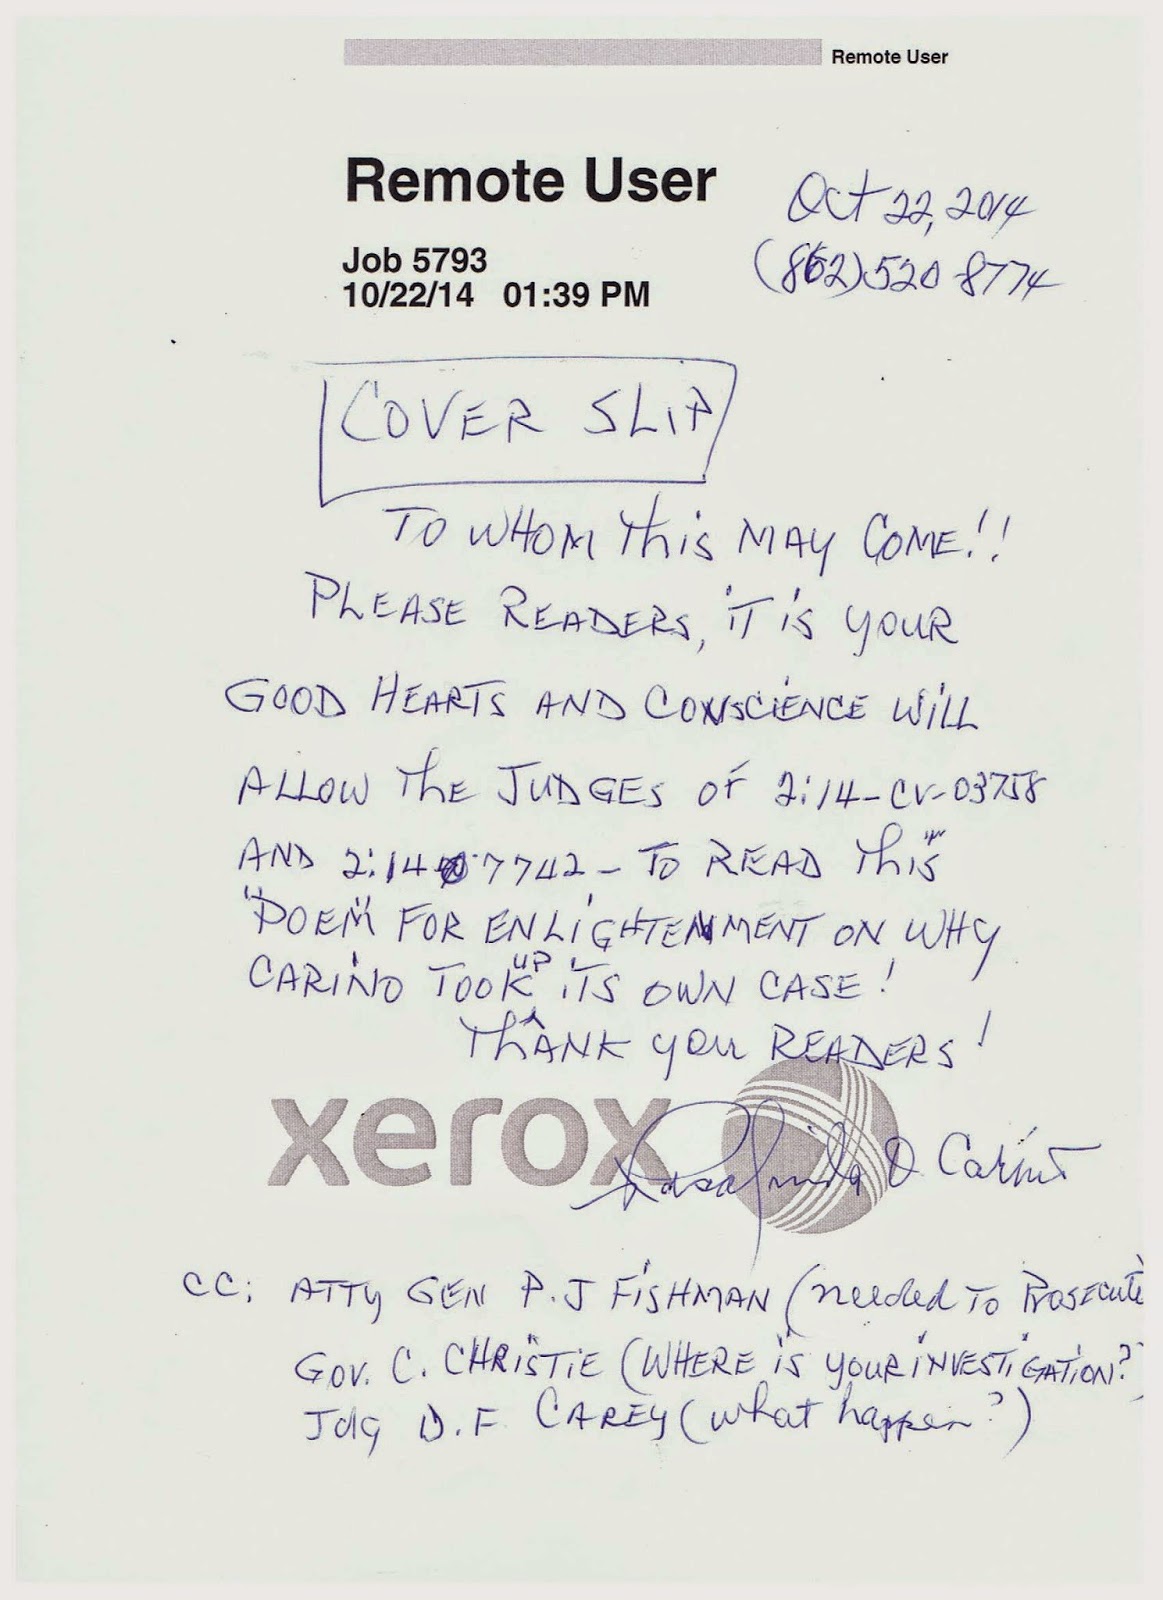 Remote User
Remote User
Oct 22, 2014
Job 5793
(862) 520-8774
10/22/14 01:39 PM
COVER SLIP
TO WHOM This MAY COME!!
PLEASE READERS, iT iS YOUR
GOOD HEARTS AND CONSCiENCE WiLL
ALLOW The JUDGES OF 2:14-CV-03758
AND 2:14 7742 - TO READ This
"POEM" FOR ENLiGHTENMENT ON WHY
CARiNO TOOK UP iTS OWN CASE!
ThANK you READERS!
xerox
O. Carino
CC: ATTY GEN P.J FiSHMAN (needed TO PROSECUTE
GOV. C. CHRiSTiE (WHERE iS YOUR iNVESTiGATiON?)
Jdg D.F CAREY (what happen?)